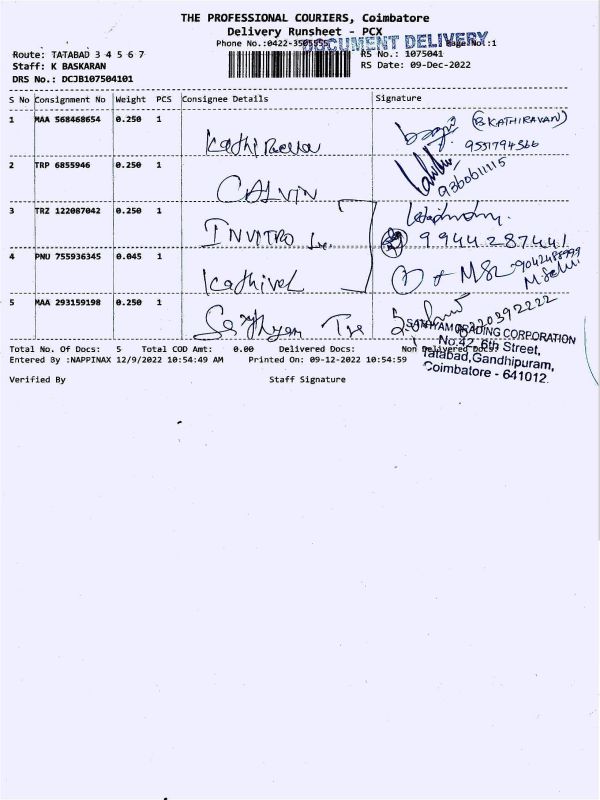 THE PROFESSIONAL COURIERS, Coimbatore
Delivery Runsheet - PCX
Phone No.:0422-3505555
DOCUMENT DELIVERY
Page No:1
Route: TATABAD 3 4 5 6 7
RS No.: 1075041
Staff: K BASKARAN
RS Date: 09-Dec-2022
DRS No.: DCJB107504101
S No Consignment No Weight PCS Consignee Details Signature
1 MAA 568468654 0.250 1
(B.KATHIRAVAN)
9551794566
2 TRP 6855946 0.250 1 CALVIN
9360611115
3 TRZ 122087042 0.250 1 INVITRO
9944287441
4 PNU 755936345 0.045 1 Kathivel
9042488999
5 MAA 293159198 0.250 1 Sathyam Tra
8220392222
SATHYAM TRADING CORPORATION
No.42, 6th Street,
Tatabad, Gandhipuram,
Coimbatore - 641012.
Total No. Of Docs: 5 Total COD Amt: 0.00 Delivered Docs: Non Delivered Docs:
Entered By :NAPPINAX 12/9/2022 10:54:49 AM Printed On: 09-12-2022 10:54:59
Verified By Staff Signature